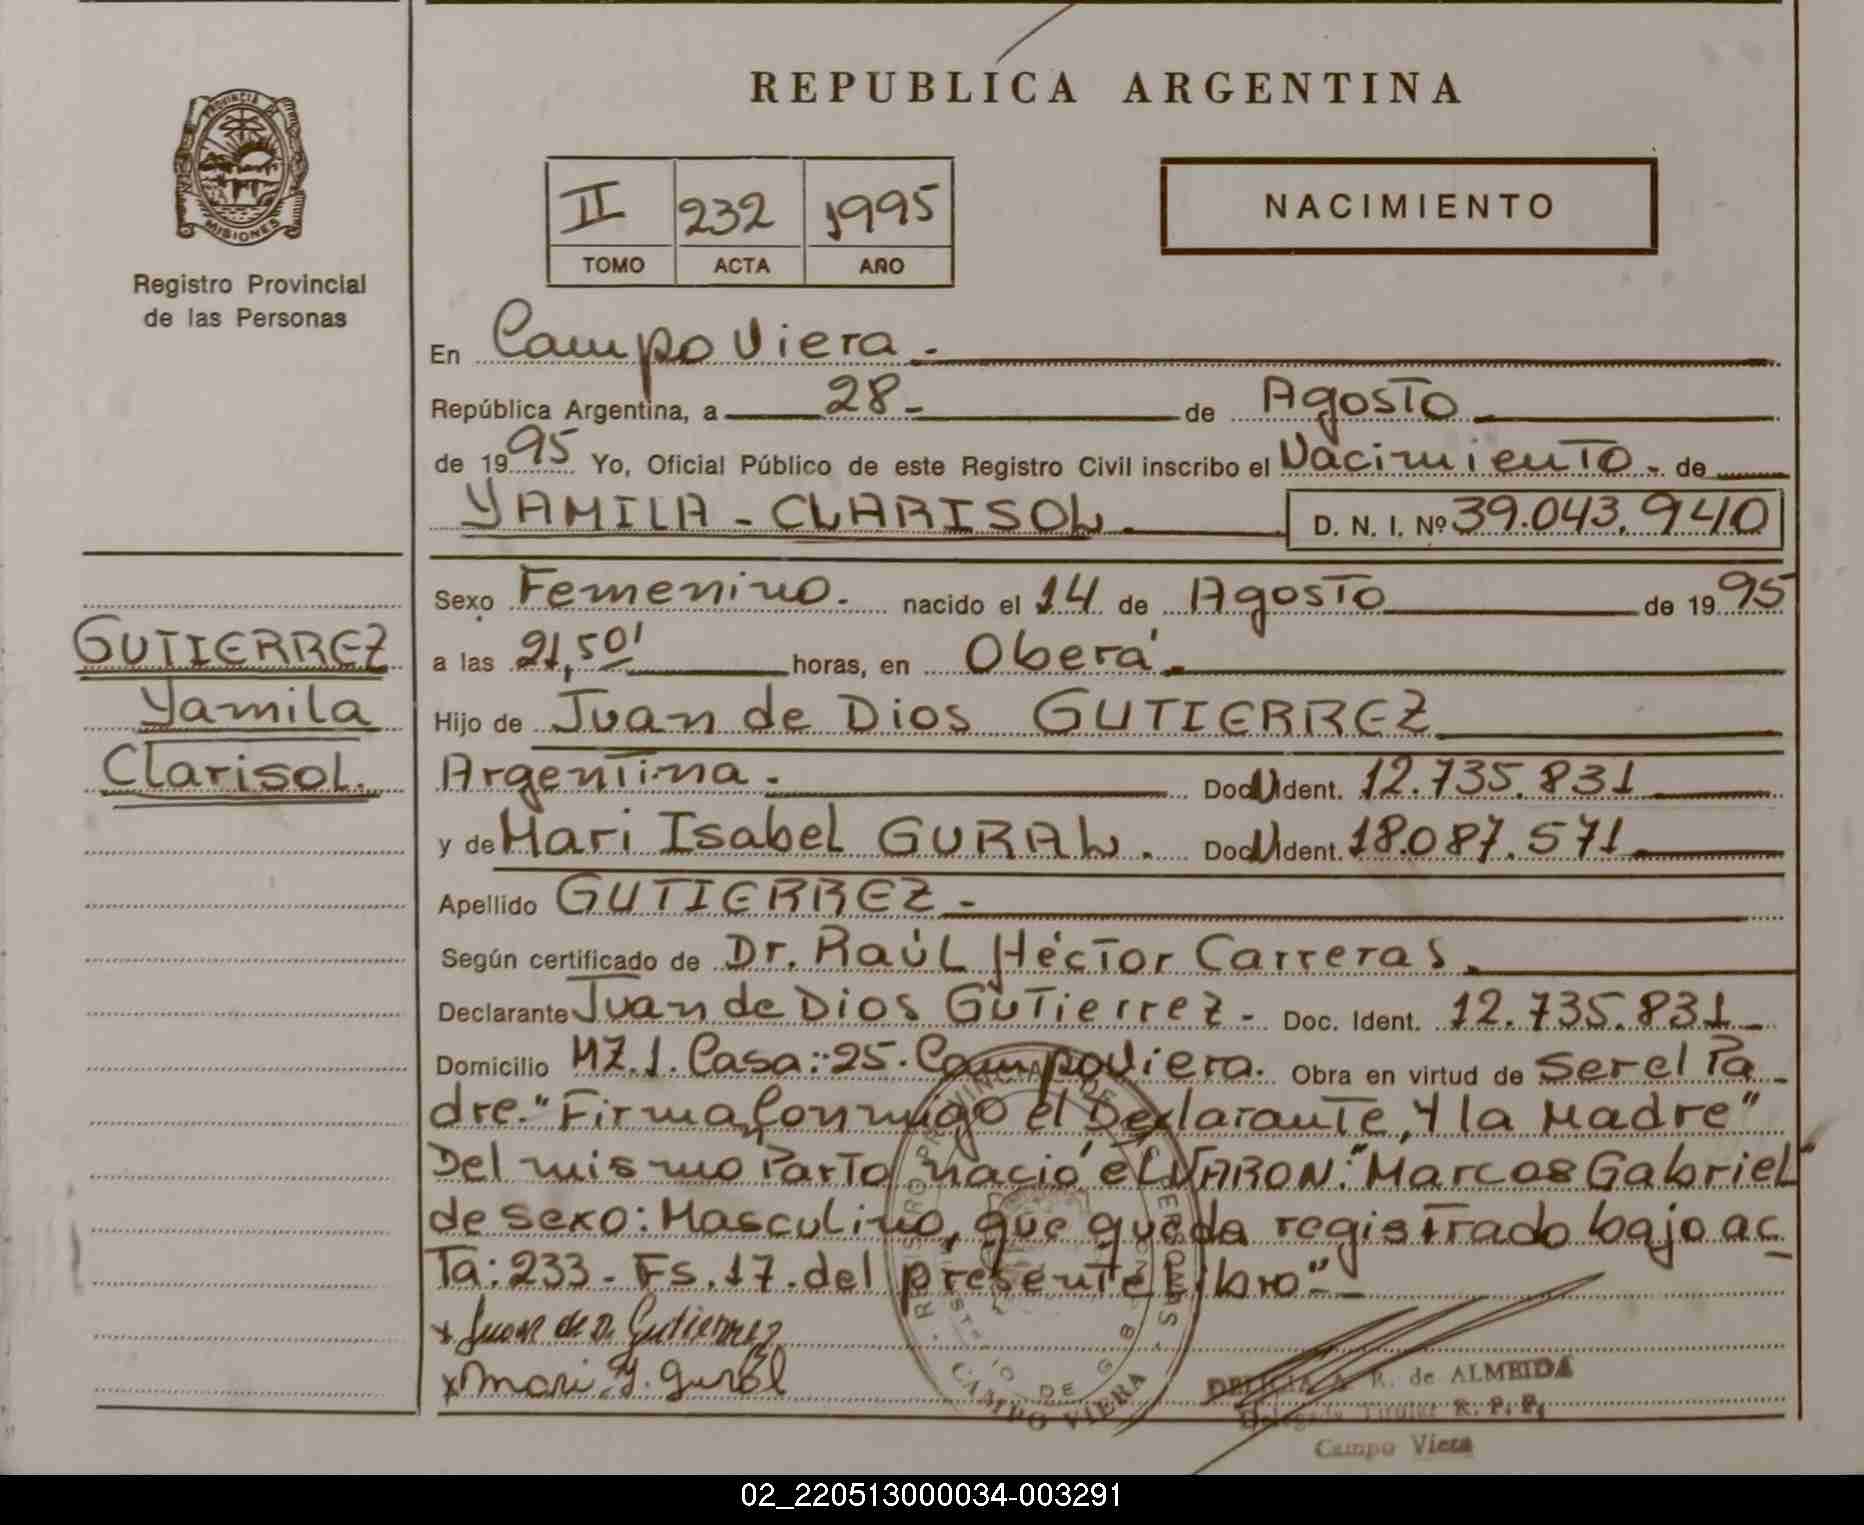 REPUBLICA ARGENTINA
PROVINCIA DE
MISIONES
Registro Provincial
de las Personas
II 232 1995
TOMO ACTA AÑO
NACIMIENTO
En Campo Viera.-
República Argentina, a 28- de Agosto
de 1995 Yo, Oficial Público de este Registro Civil inscribo el Nacimiento- de
YAMILA - CLARISOL. D. N. I. Nº 39.043.940
Sexo Femenino. nacido el 14 de Agosto de 1995
a las 21,50' horas, en Oberá.
GUTIERREZ
Yamila
Clarisol.
Hijo de Juan de Dios GUTIERREZ
Argentina. Doc U Ident. 12.735.831
y de Mari Isabel GURAL. Doc U Ident. 18.087.571
Apellido GUTIERREZ-
Según certificado de Dr. Raúl Héctor Carreras.
Declarante Juan de Dios Gutierrez- Doc. Ident. 12.735.831-
Domicilio MZ.1. Casa:25. Campo Viera. Obra en virtud de ser el Pa-
dre." Firma Conmigo el Declarante, y la Madre"
Del mismo Parto nació el VARON:"Marcos Gabriel"
de sexo: Masculino, que queda registrado bajo ac-
ta: 233- Fs. 17. del presente Libro"-
x Juan de D. Gutierrez
x Mari. I. Gural
CAMPO VIERA
R. de ALMEIDA
Delegada Titular R. P. P.
Campo Viera
02_220513000034-003291